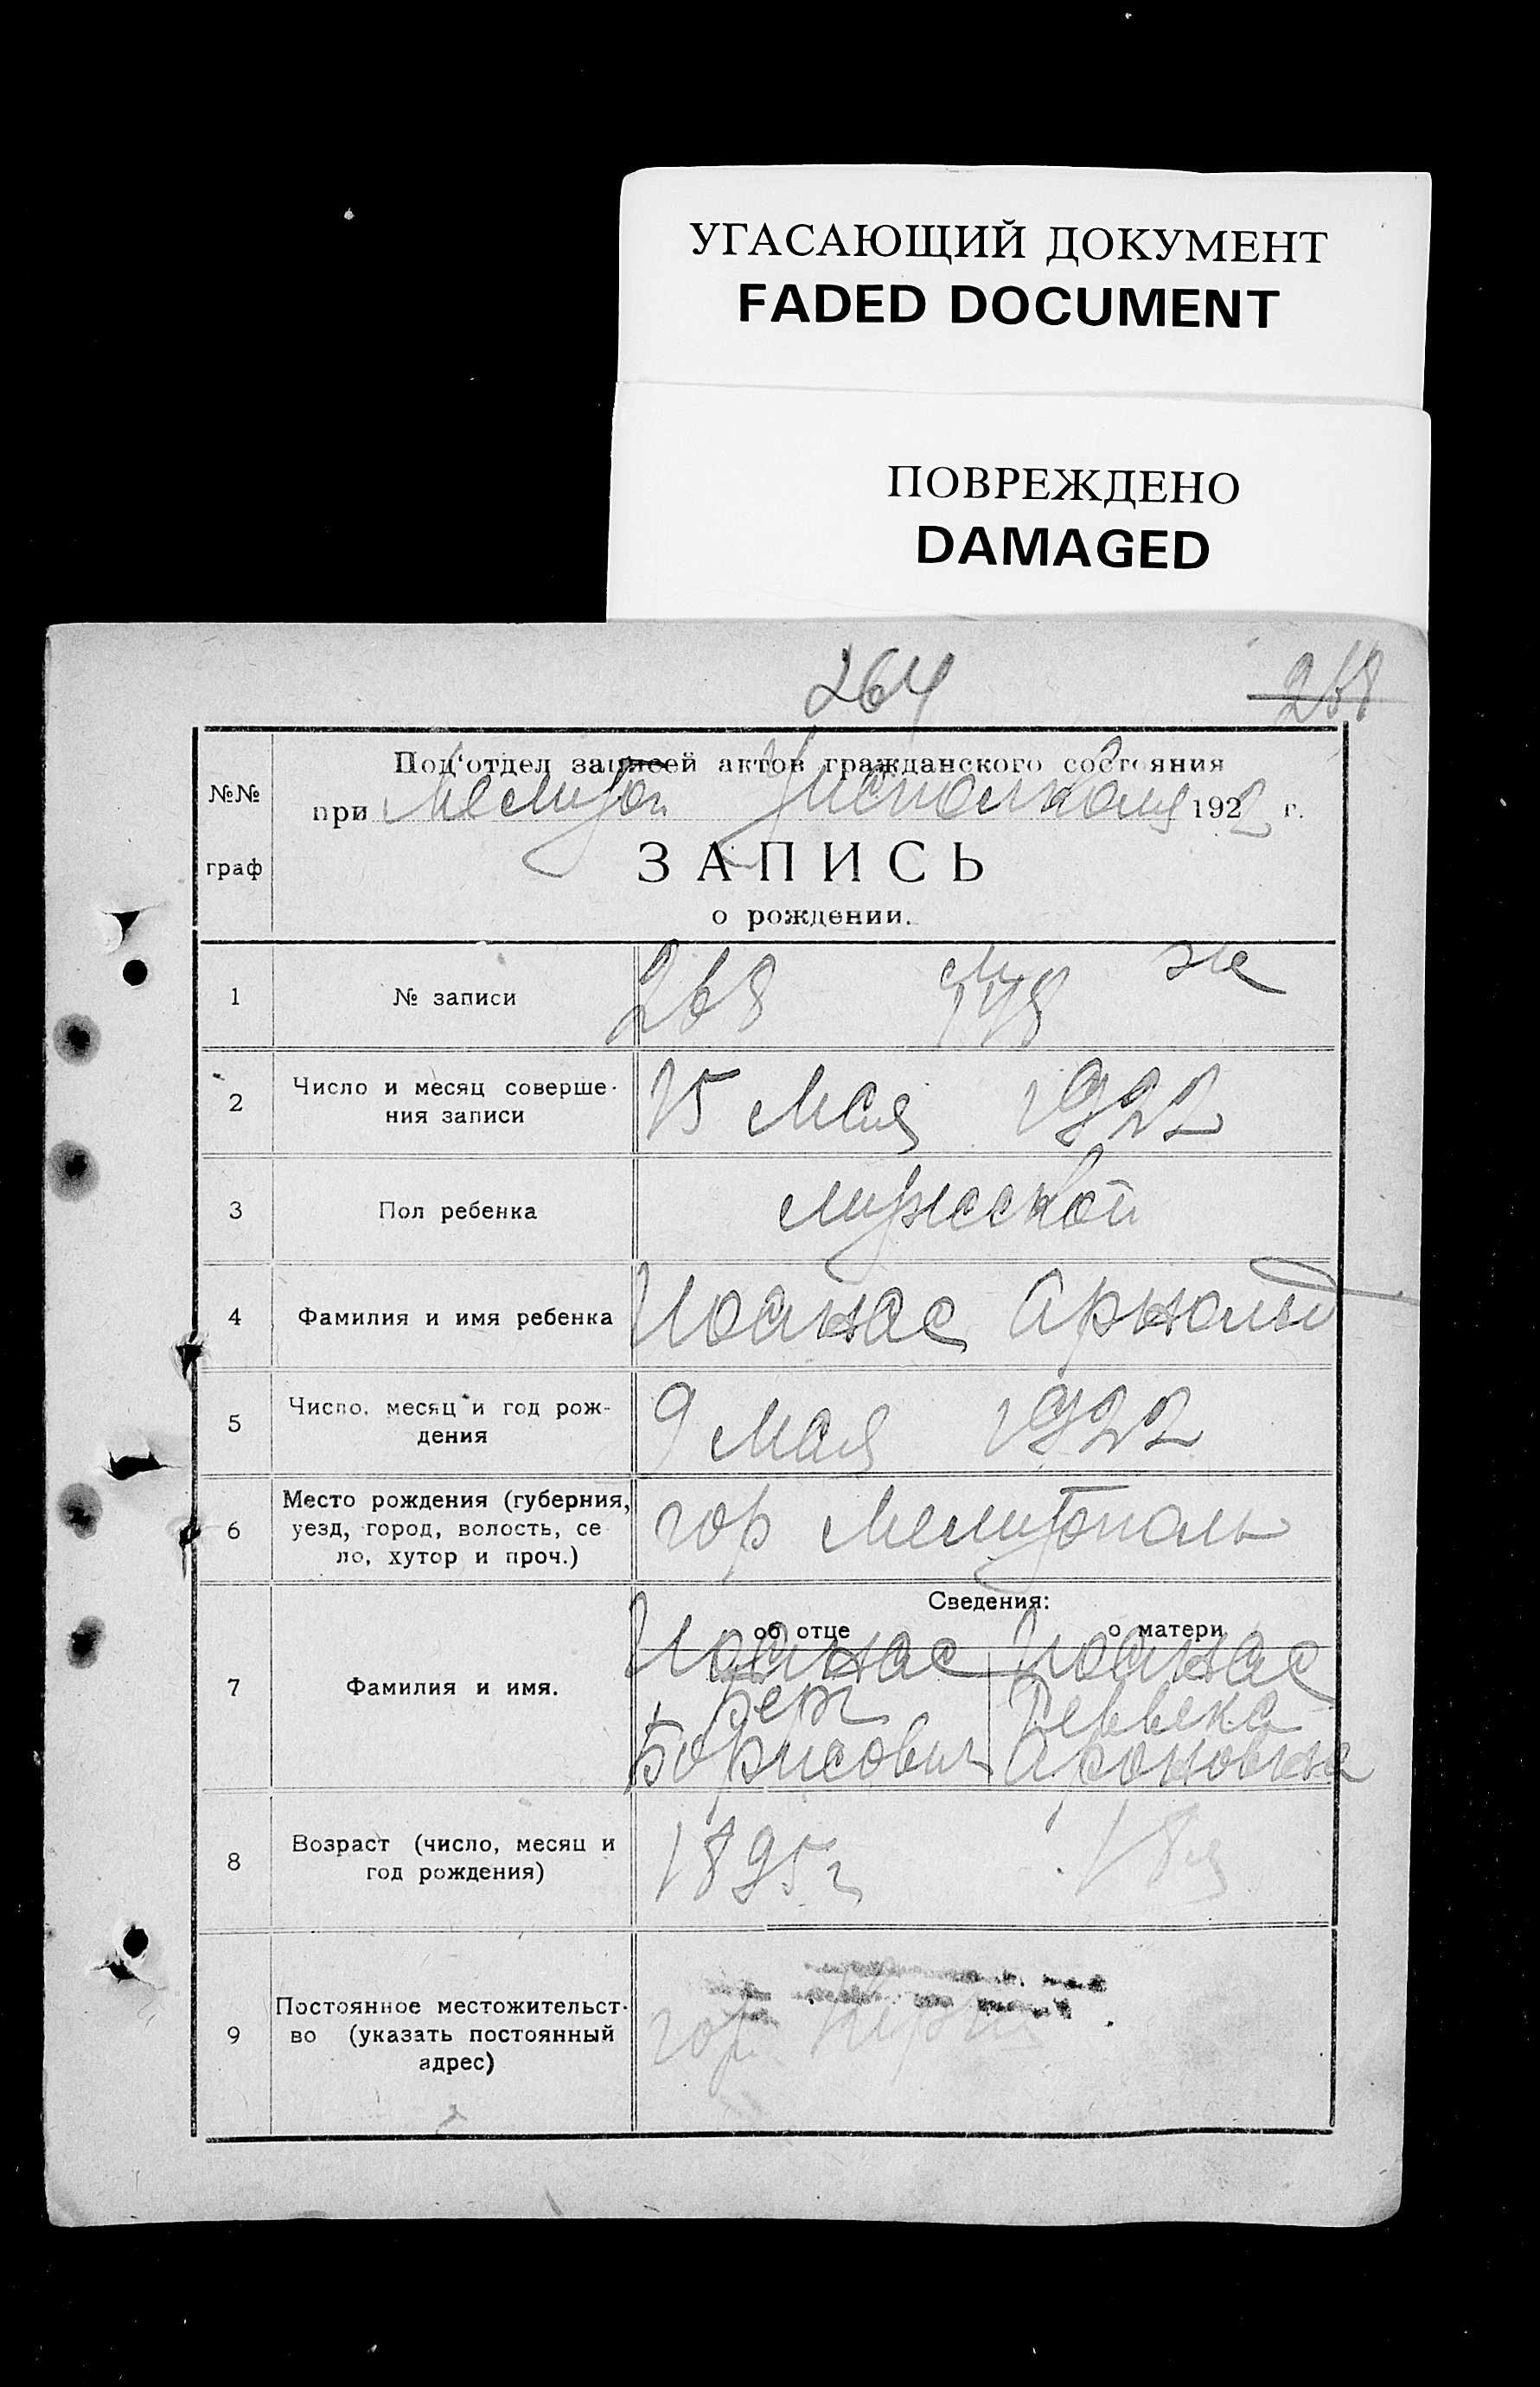 УГАСАЮЩИЙ ДОКУМЕНТ
FADED DOCUMENT
ПОВРЕЖДЕНО
DAMAGED
264 268
№№
граф
Под‘отдел записей актов гражданского состояния
при Мелитоп Уисполкома 1922 г.
ЗАПИСЬ
о рождении.
1 № записи 268 м 148 ж
2 Число и месяц соверше-
ния записи
15 Мая 1922
3 Пол ребенка мужской
4 Фамилия и имя ребенка Иоанас Арнольд
5 Число, месяц и год рож-
дения
9 Мая 1922
6 Место рождения (губерния,
уезд, город, волость, се
ло, хутор и проч.)
гор Мелитополь
Сведения:
об отце о матери
7 Фамилия и имя.
Иоанас Иоанас
Берг Ревьека
Борисович Ароновна
8 Возраст (число, месяц и
год рождения)
1895 г 18
9 Постоянное местожительст-
во (указать постоянный
адрес)
гор